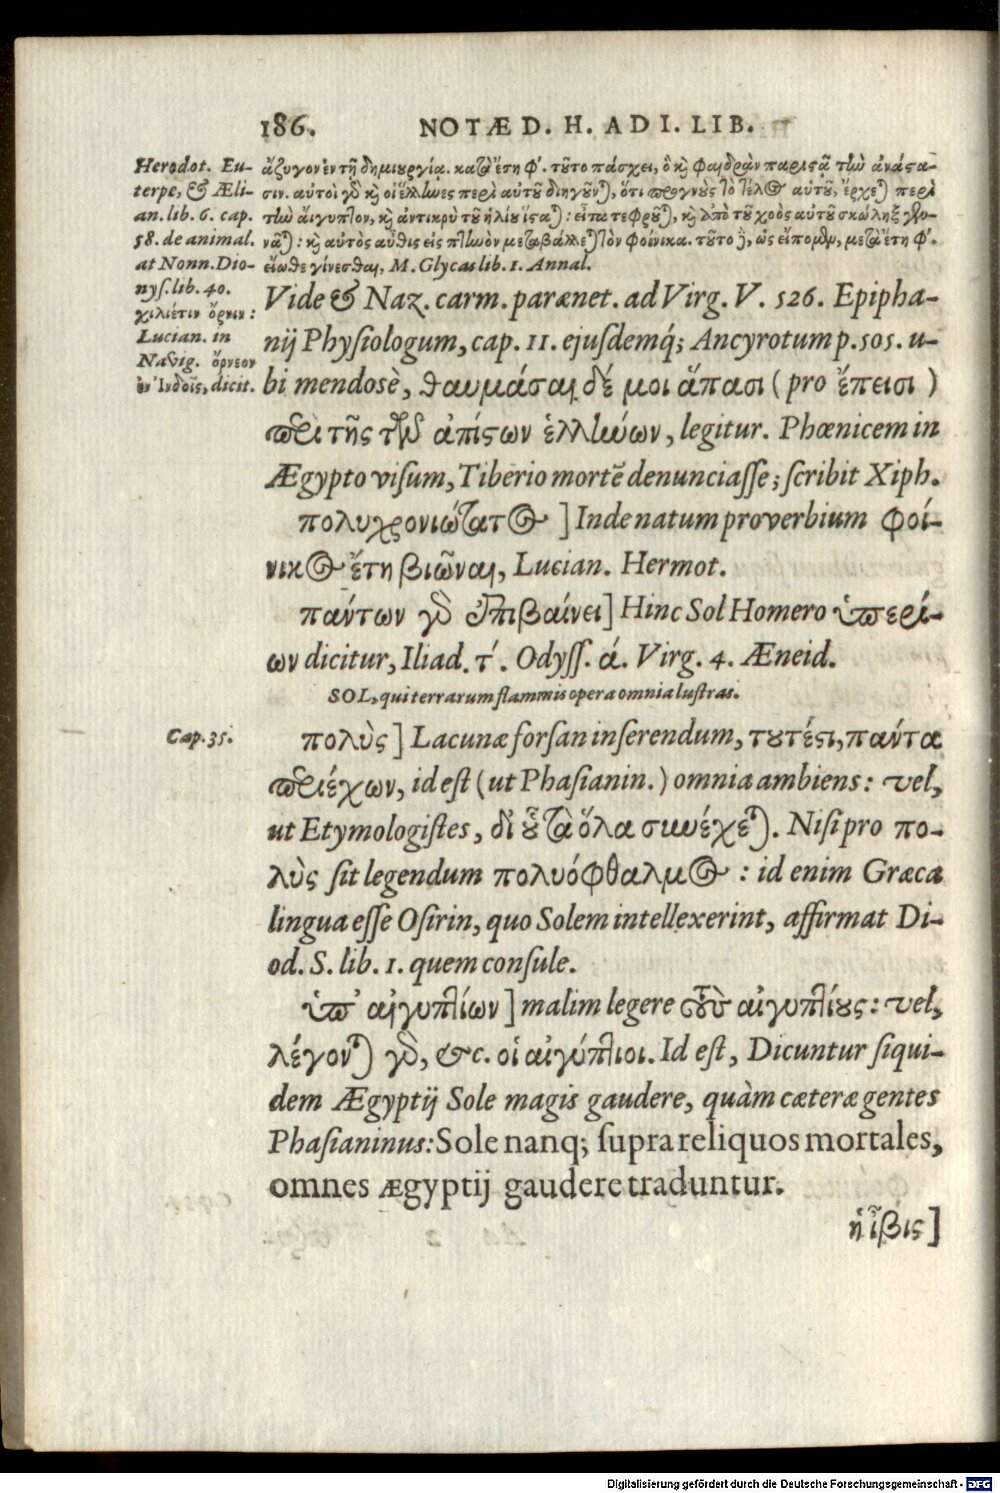 186. NOTÆ D. H. AD I. LIB.
Herodot. Eu-
terpe, & Æli-
an. lib. 6. cap.
58. de animal.
at Nonn. Dio-
nys. lib. 40.
χιλιέτιν ὄρνιν:
Lucian. in
Navig. ὄρνεον
ἐν Ἰνδοῖς, dicit.
ἄζυγον ἐν τῇ δημιουργίᾳ. κατὰ ἔτη φ΄. τοῦτο πάσχει, ὃ καὶ φαιδρὰν παριστᾷ τὴν ἀνάστα-
σιν. αὐτοὶ γὸ καὶ οἱ ἕλληνες περὶ αὐτοῦ διηγοῦνται, ὅτι προγνοὺς τὸ τέλος αὑτοῦ, ἔρχεται περὶ
τὴν αἴγυπτον, καὶ ἀντικρὺ τοῦ ἡλίου ἵσταται: εἶτα τεφροῦται, καὶ ἀπὸ τοῦ χοὸς αὐτοῦ σκώληξ γεν-
νᾶται: καὶ αὐτὸς αὖθις εἰς πτηνὸν μεταβάλλεται τὸν φοίνικα. τοῦτο δὲ, ὡς εἴπομεν, μετὰ ἔτη φ΄.
εἴωθε γίνεσθαι, M. Glycas lib. 1. Annal.
Vide & Naz. carm. parænet. ad Virg. V. 526. Epipha-
nij Physiologum, cap. 11. ejusdemq; Ancyrotum p. 505. u-
bi mendosè, θαυμάσαι δέ μοι ἅπασι (pro ἔπεισι)
περὶ τῆς τῶν ἀπίστων ἑλλήνων, legitur. Phœnicem in
Ægypto visum, Tiberio mortē denunciasse; scribit Xiph.
πολυχρονιώτατος] Inde natum proverbium φοί-
νικος ἔτη βιῶναι, Lucian. Hermot.
πάντων γὸ ἐπιβαίνει] Hinc Sol Homero ὑπερί-
ων dicitur, Iliad. τ΄. Odyss. ά. Virg. 4. Æneid.
SOL, qui terrarum flammis opera omnia lustras.
Cap. 35.
πολὺς] Lacunæ forsan inserendum, τουτέστι, πάντα
περιέχων, id est (ut Phasianin.) omnia ambiens: vel,
ut Etymologistes, δι' οὗ τὰ ὅλα συνέχεται. Nisi pro πο-
λὺς sit legendum πολυόφθαλμος: id enim Græca
lingua esse Osirin, quo Solem intellexerint, affirmat Di-
od. S. lib. 1. quem consule.
ὑπ' αἰγυπτίων] malim legere τοὺς αἰγυπτίους: vel,
λέγονται γὸ, &c. οἱ αἰγύπτιοι. Id est, Dicuntur siqui-
dem Ægyptij Sole magis gaudere, quàm cæteræ gentes
Phasianinus: Sole nanq; supra reliquos mortales,
omnes ægyptij gaudere traduntur.
ἡ ἶβις]
Digitalisierung gefördert durch die Deutsche Forschungsgemeinschaft - DFG